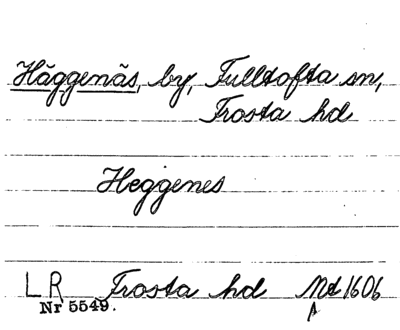 Häggenäs, by, Fulltofta sn,
Frosta hd
Heggenes
LR Frosta hd Mt 1606
Nr 5549.